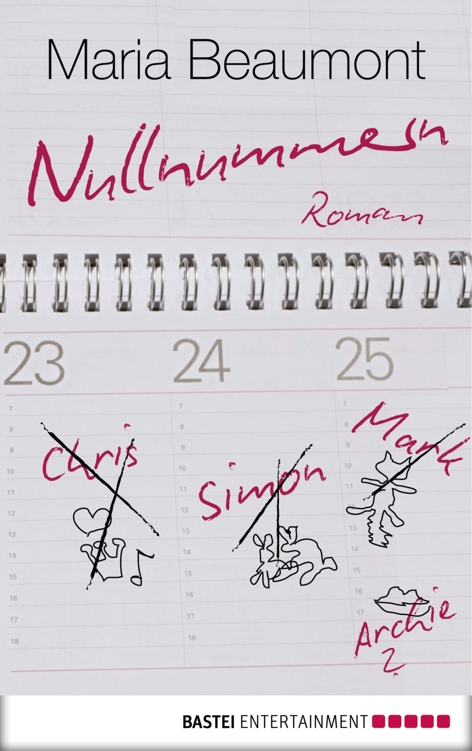 Maria Beaumont
Nullnummern
Roman
23 24 25
7 7 7
8 8 8
9 9 9
10 10 10
11 11 11
12 12 12
13 13 13
14 14 14
15 15 15
16 16 16
17 17 17
18 18
Chris
Simon
Mark
Archie
?
BASTEI ENTERTAINMENT